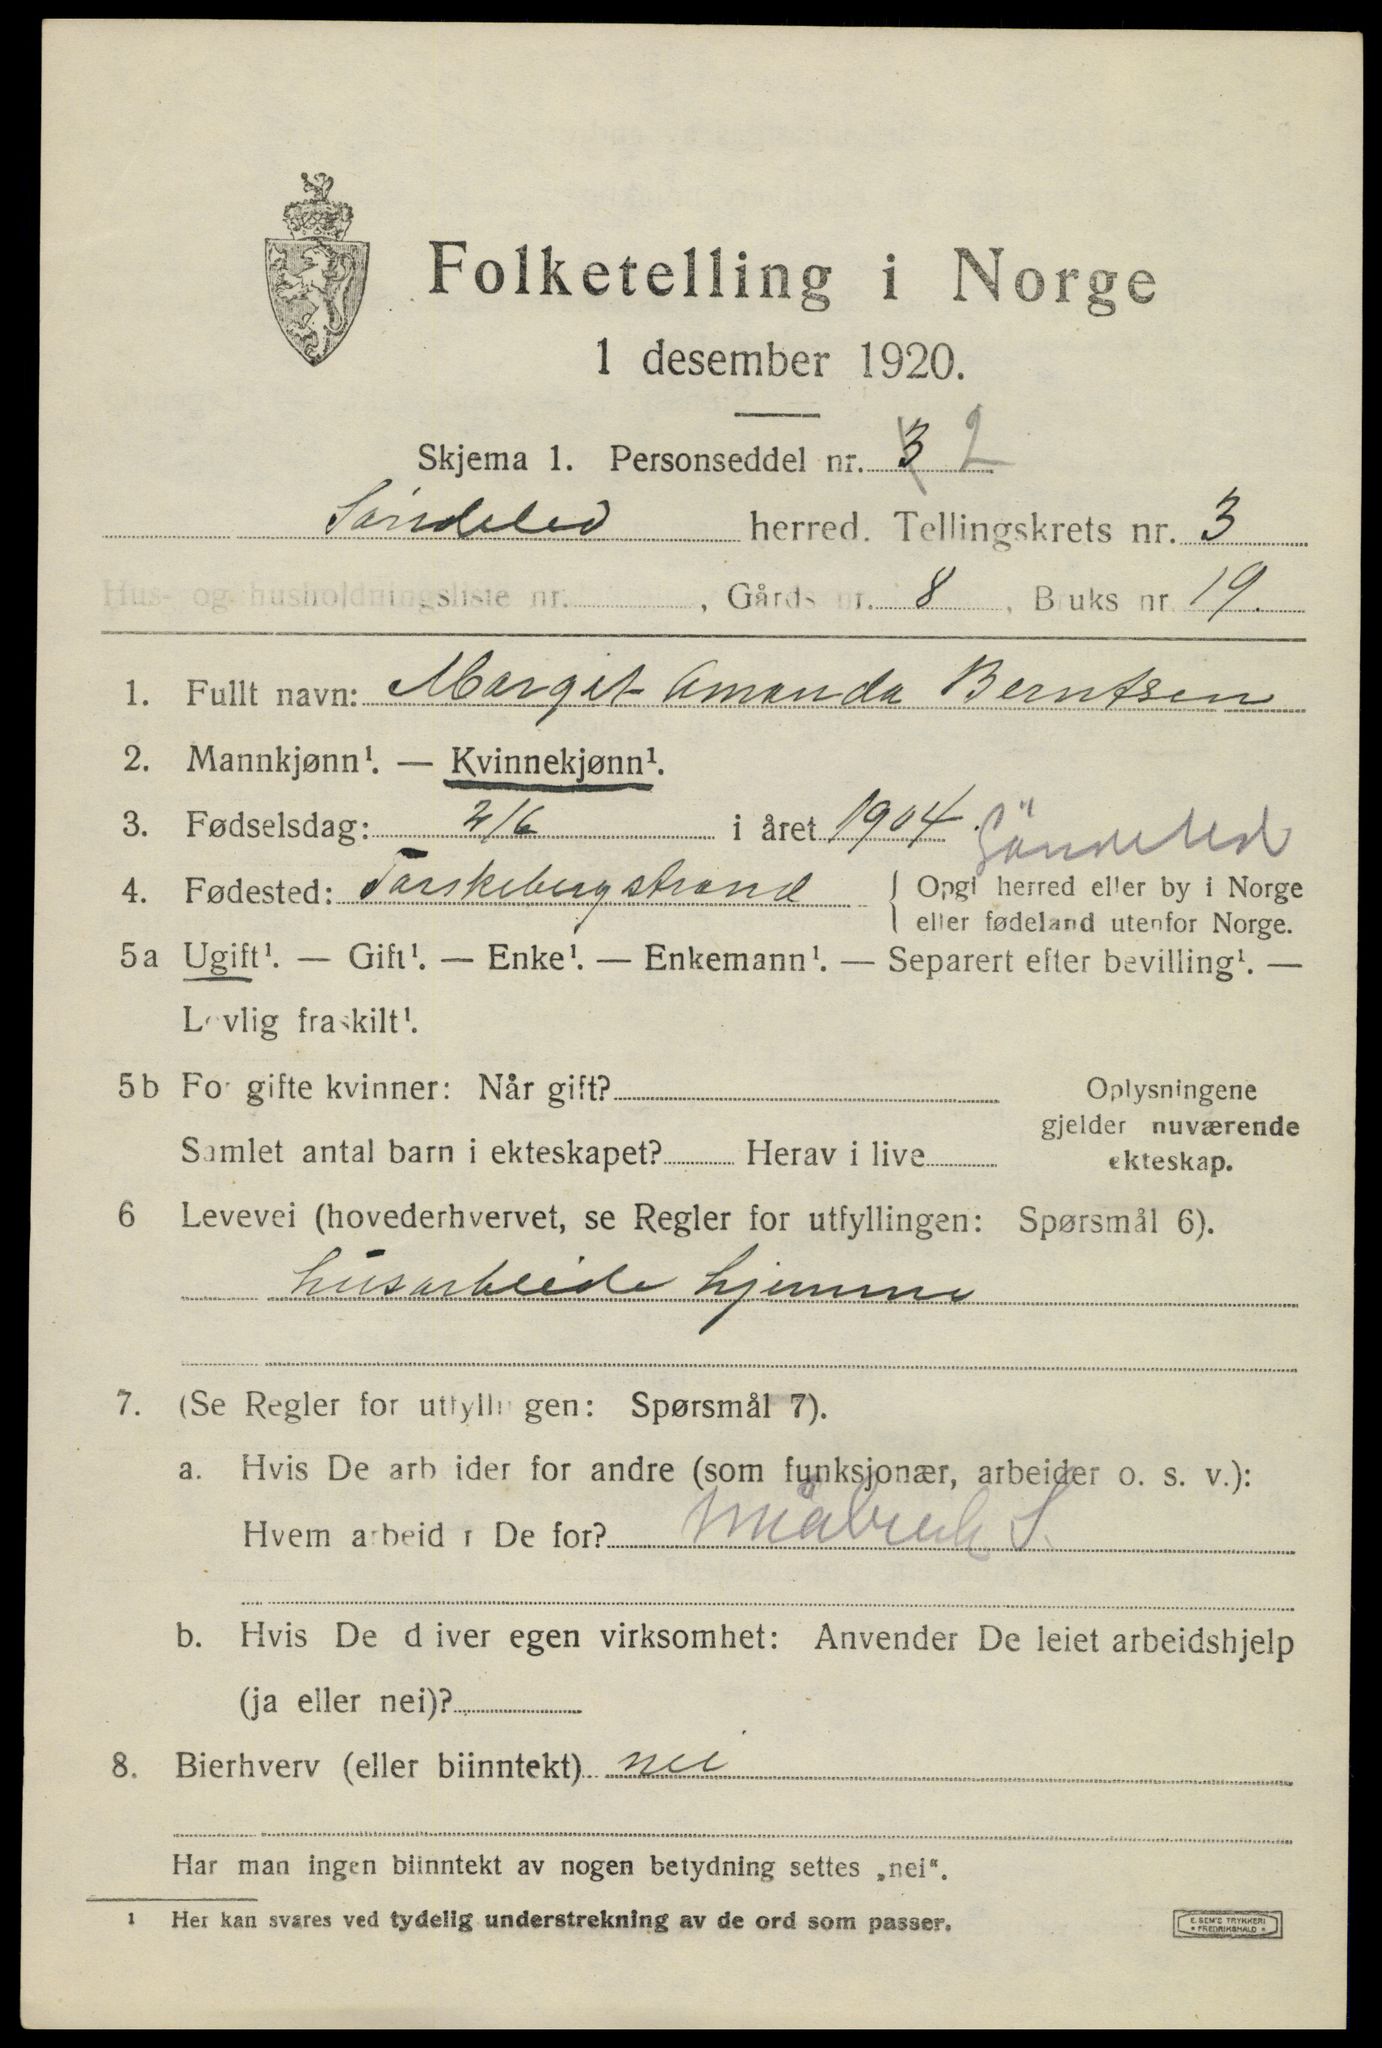 Folketelling i Norge
1 desember 1920.
Skjema 1. Personseddel nr. 3 2
Söndeled herred. Tellingskrets nr. 3
Hus- og husholdningsliste nr. , Gårds nr. 8 , Bruks nr. 19.
1. Fullt navn: Margit Amanda Berntsen
2. Mannkjønn¹. — Kvinnekjønn¹.
3. Fødselsdag: 2/6 i året 1904. Söndeled
4. Fødested: Torskebergstrand { Opgi herred eller by i Norge
eller fødeland utenfor Norge.
5a Ugift¹. — Gift¹. — Enke¹. — Enkemann¹. — Separert efter bevilling¹. —
Lovlig fraskilt¹.
5b For gifte kvinner: Når gift? Oplysningene
gjelder nuværende
Samlet antal barn i ekteskapet? Herav i live ekteskap.
6 Levevei (hovederhvervet, se Regler for utfyllingen: Spørsmål 6).
husarbeide hjemme
7. (Se Regler for utfyllingen: Spørsmål 7).
a. Hvis De arbeider for andre (som funksjonær, arbeider o. s. v.):
Hvem arbeider De for?
b. Hvis De driver egen virksomhet: Anvender De leiet arbeidshjelp
(ja eller nei)?
8. Bierhverv (eller biinntekt) nei
Har man ingen biinntekt av nogen betydning settes „nei“.
1 Her kan svares ved tydelig understrekning av de ord som passer.
E. SEM'S TRYKKERI
* FREDRIKSHALD *